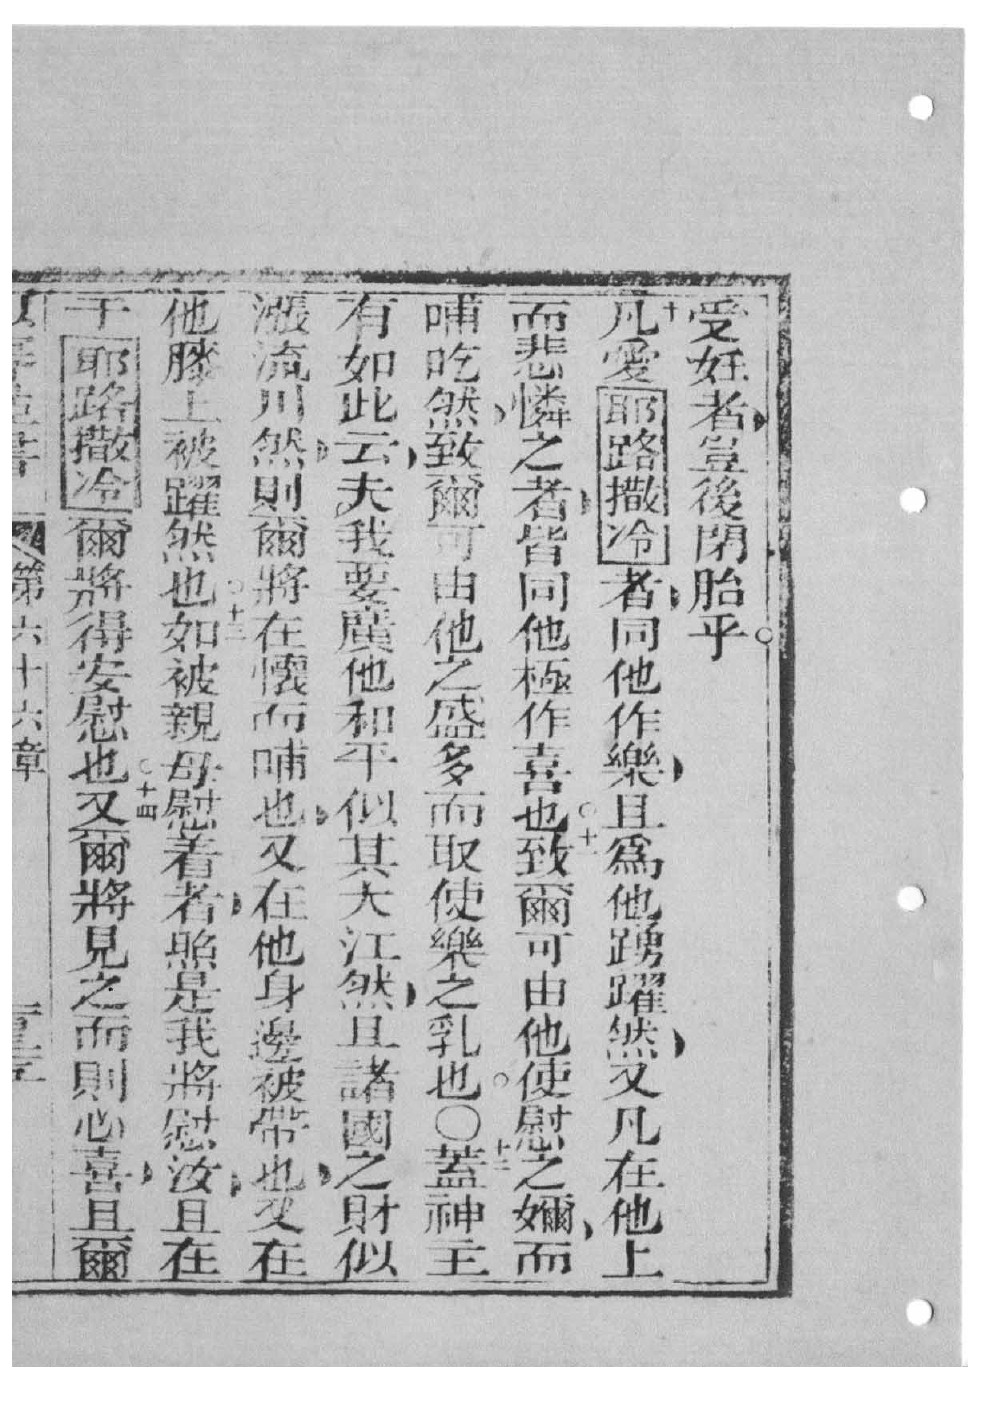 受妊者豈後閉胎乎。
十凡愛耶路撒冷者同他作樂且爲他踴躍然又凡在他上
而悲憐之者皆同他極作喜也。十一致爾可由他使慰之嬭而
哺吃然致爾可由他之盛多而取使樂之乳也。○十二蓋神主
有如此云夫我要廣他和平似其大江然且諸國之財似
漲流川然則爾將在懷而哺也又在他身邊被帶也又在
他膝上被躍然也。十三如被親母慰着者照是我將慰汝且在
于耶路撒冷爾將得安慰也。十四又爾將見之而則心喜且爾
書 第六十六章